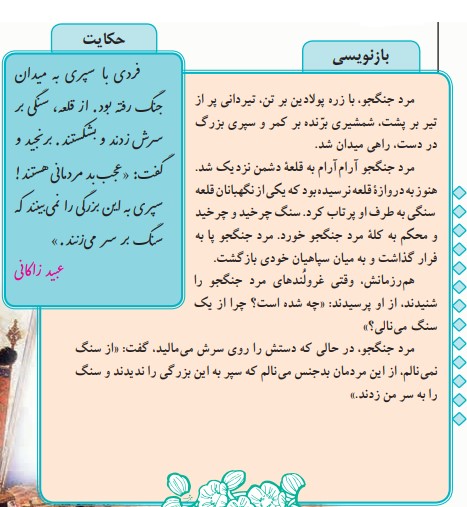 حکایت
فردی با سپری به میدان
جنگ رفته بود. از قلعه، سنگی بر
سرش زدند و بشکستند. برنجید و
گفت: «عجب بد مردمانی هستند!
سپری به این بزرگی را نمی‌بینند که
سنگ بر سر می‌زنند.»
عبید زاکانی
بازنویسی
مرد جنگجو، با زره پولادین بر تن، تیردانی پر از
تیر بر پشت، شمشیری برّنده بر کمر و سپری بزرگ
در دست، راهی میدان شد.
مرد جنگجو آرام آرام به قلعهٔ دشمن نزدیک شد.
هنوز به دروازهٔ قلعه نرسیده بود که یکی از نگهبانان قلعه
سنگی به طرف او پرتاب کرد. سنگ چرخید و چرخید
و محکم به کلهٔ مرد جنگجو خورد. مرد جنگجو پا به
فرار گذاشت و به میان سپاهیان خودی بازگشت.
هم‌رزمانش، وقتی غرولُندهای مرد جنگجو را
شنیدند، از او پرسیدند: «چه شده است؟ چرا از یک
سنگ می‌نالی؟»
مرد جنگجو، در حالی که دستش را روی سرش می‌مالید، گفت: «از سنگ
نمی‌نالم، از این مردمان بدجنس می‌نالم که سپر به این بزرگی را ندیدند و سنگ
را به سر من زدند.»